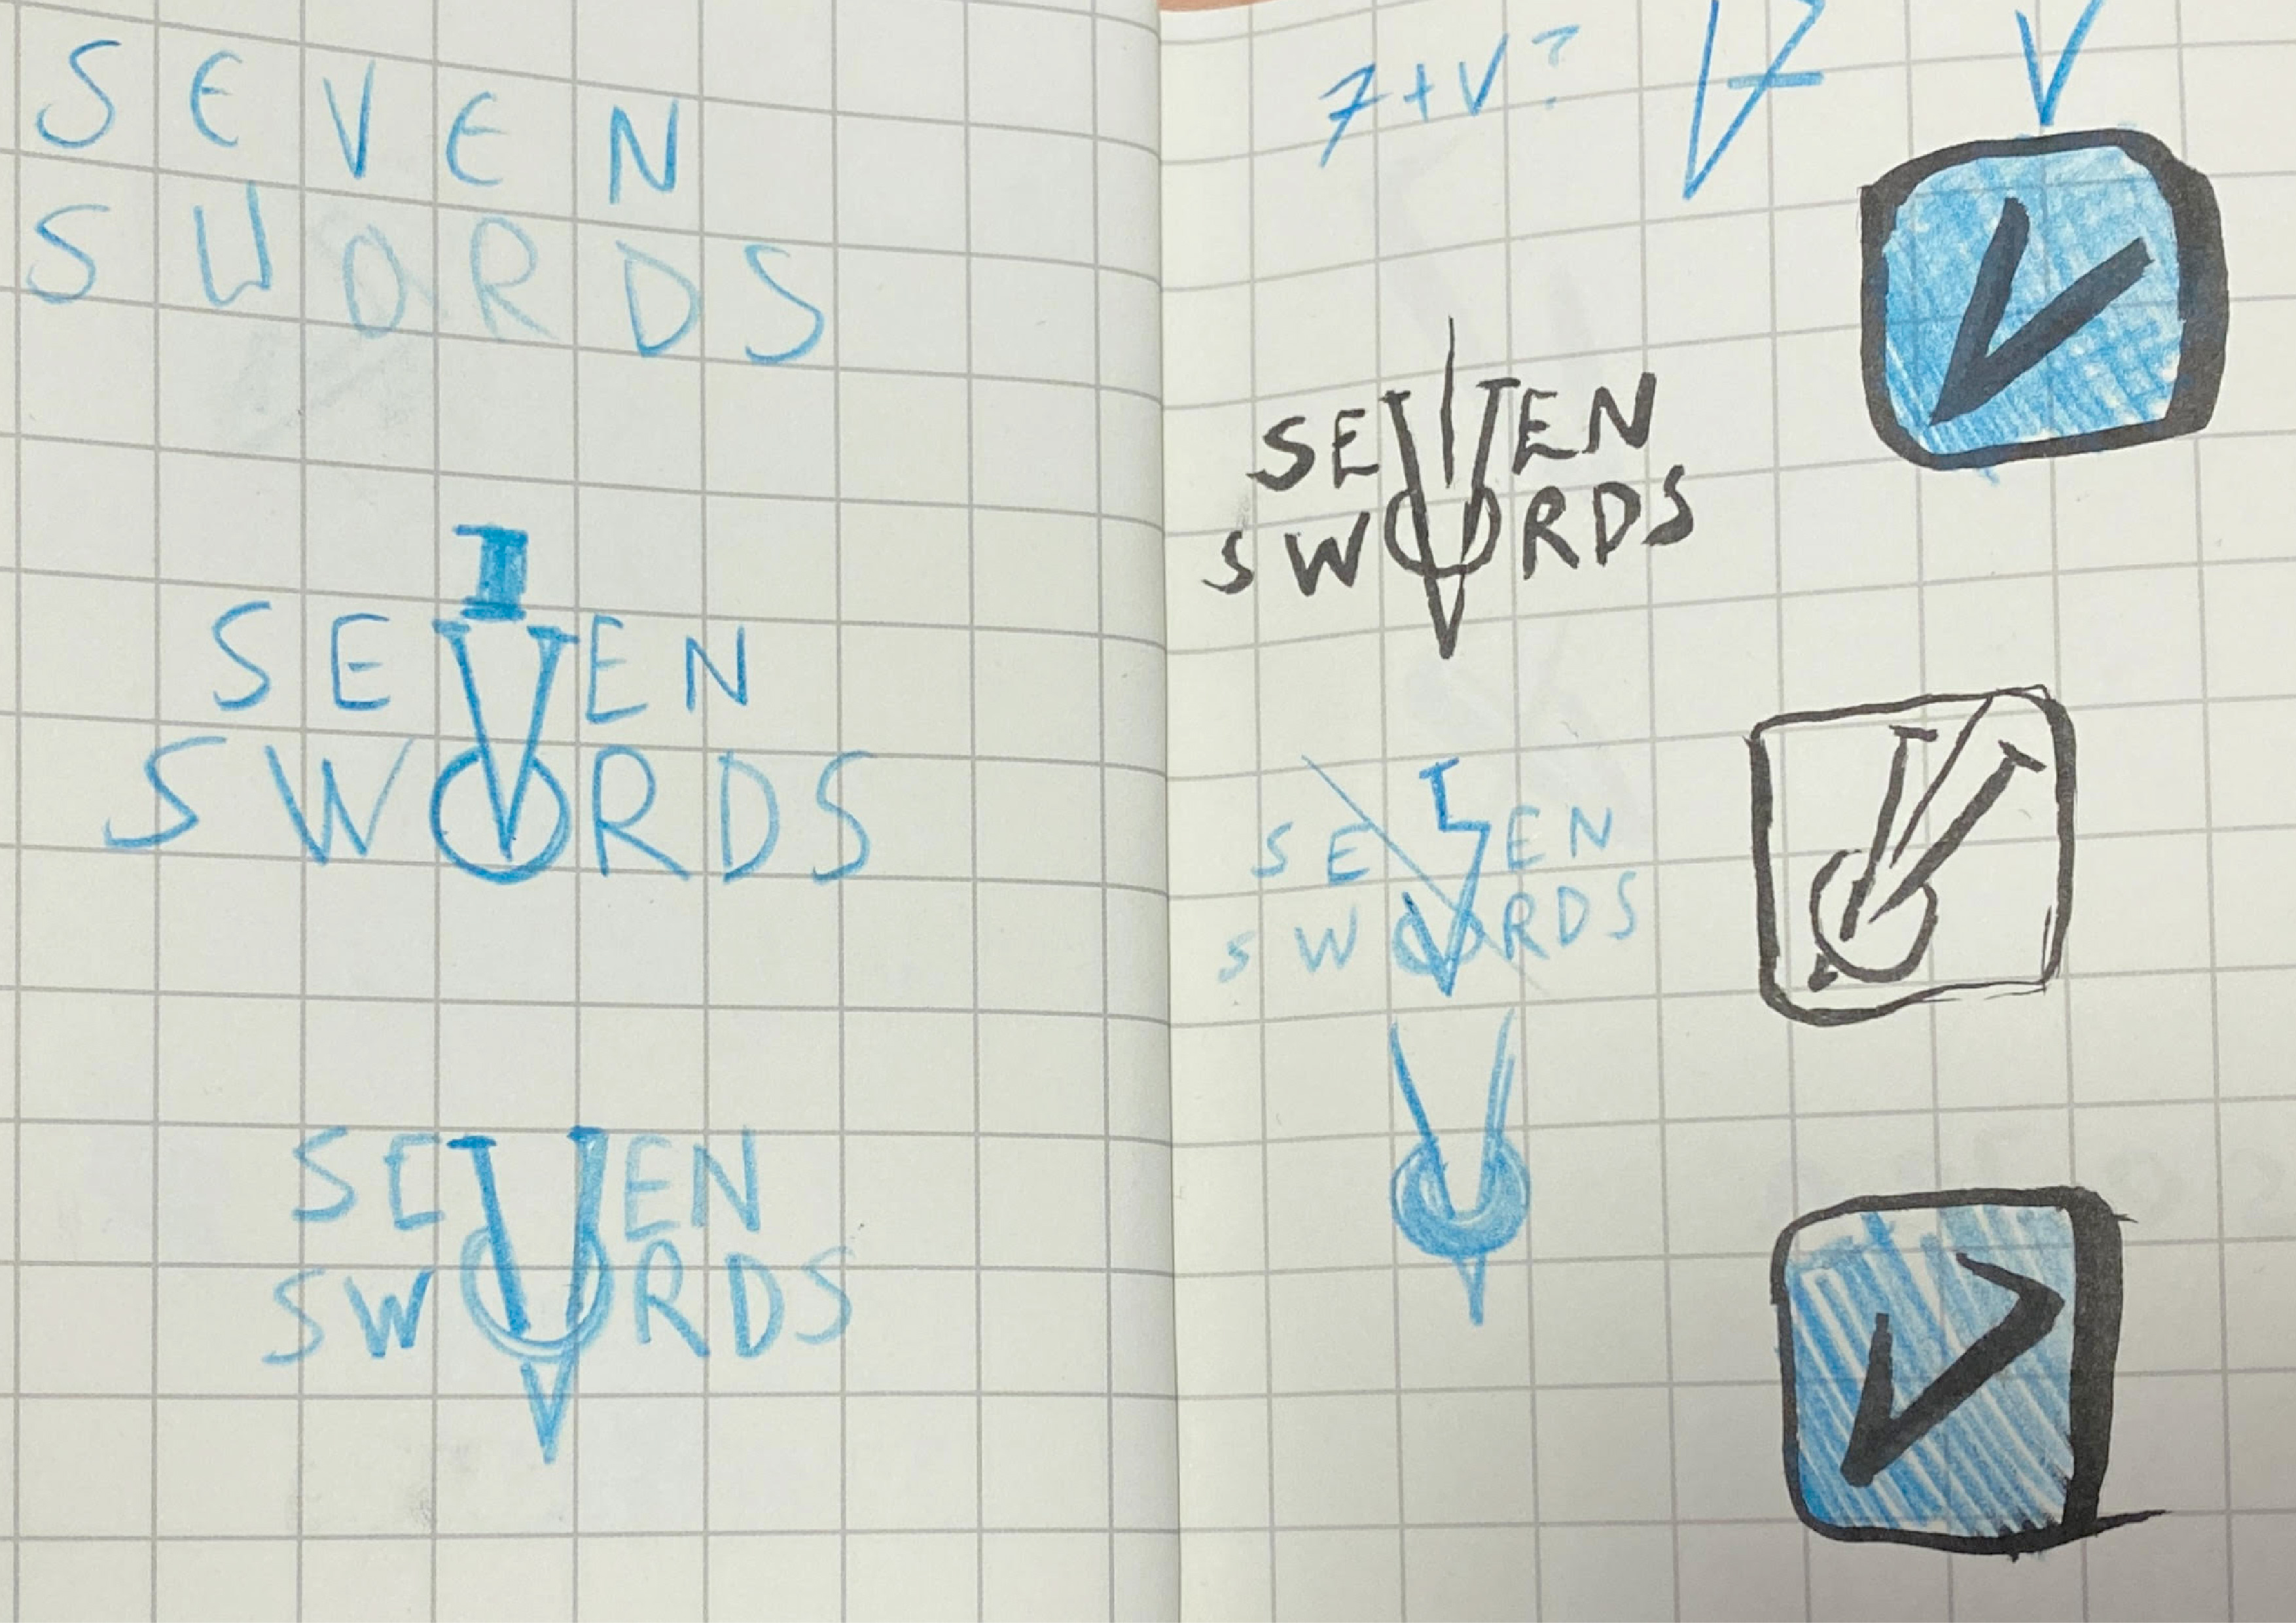 SEVEN
SWORDS
SEVEN
SWORDS
SEVEN
SWORDS
7+V?
7
V
SEVEN
SWORDS
SEVEN
SWORDS
V
V